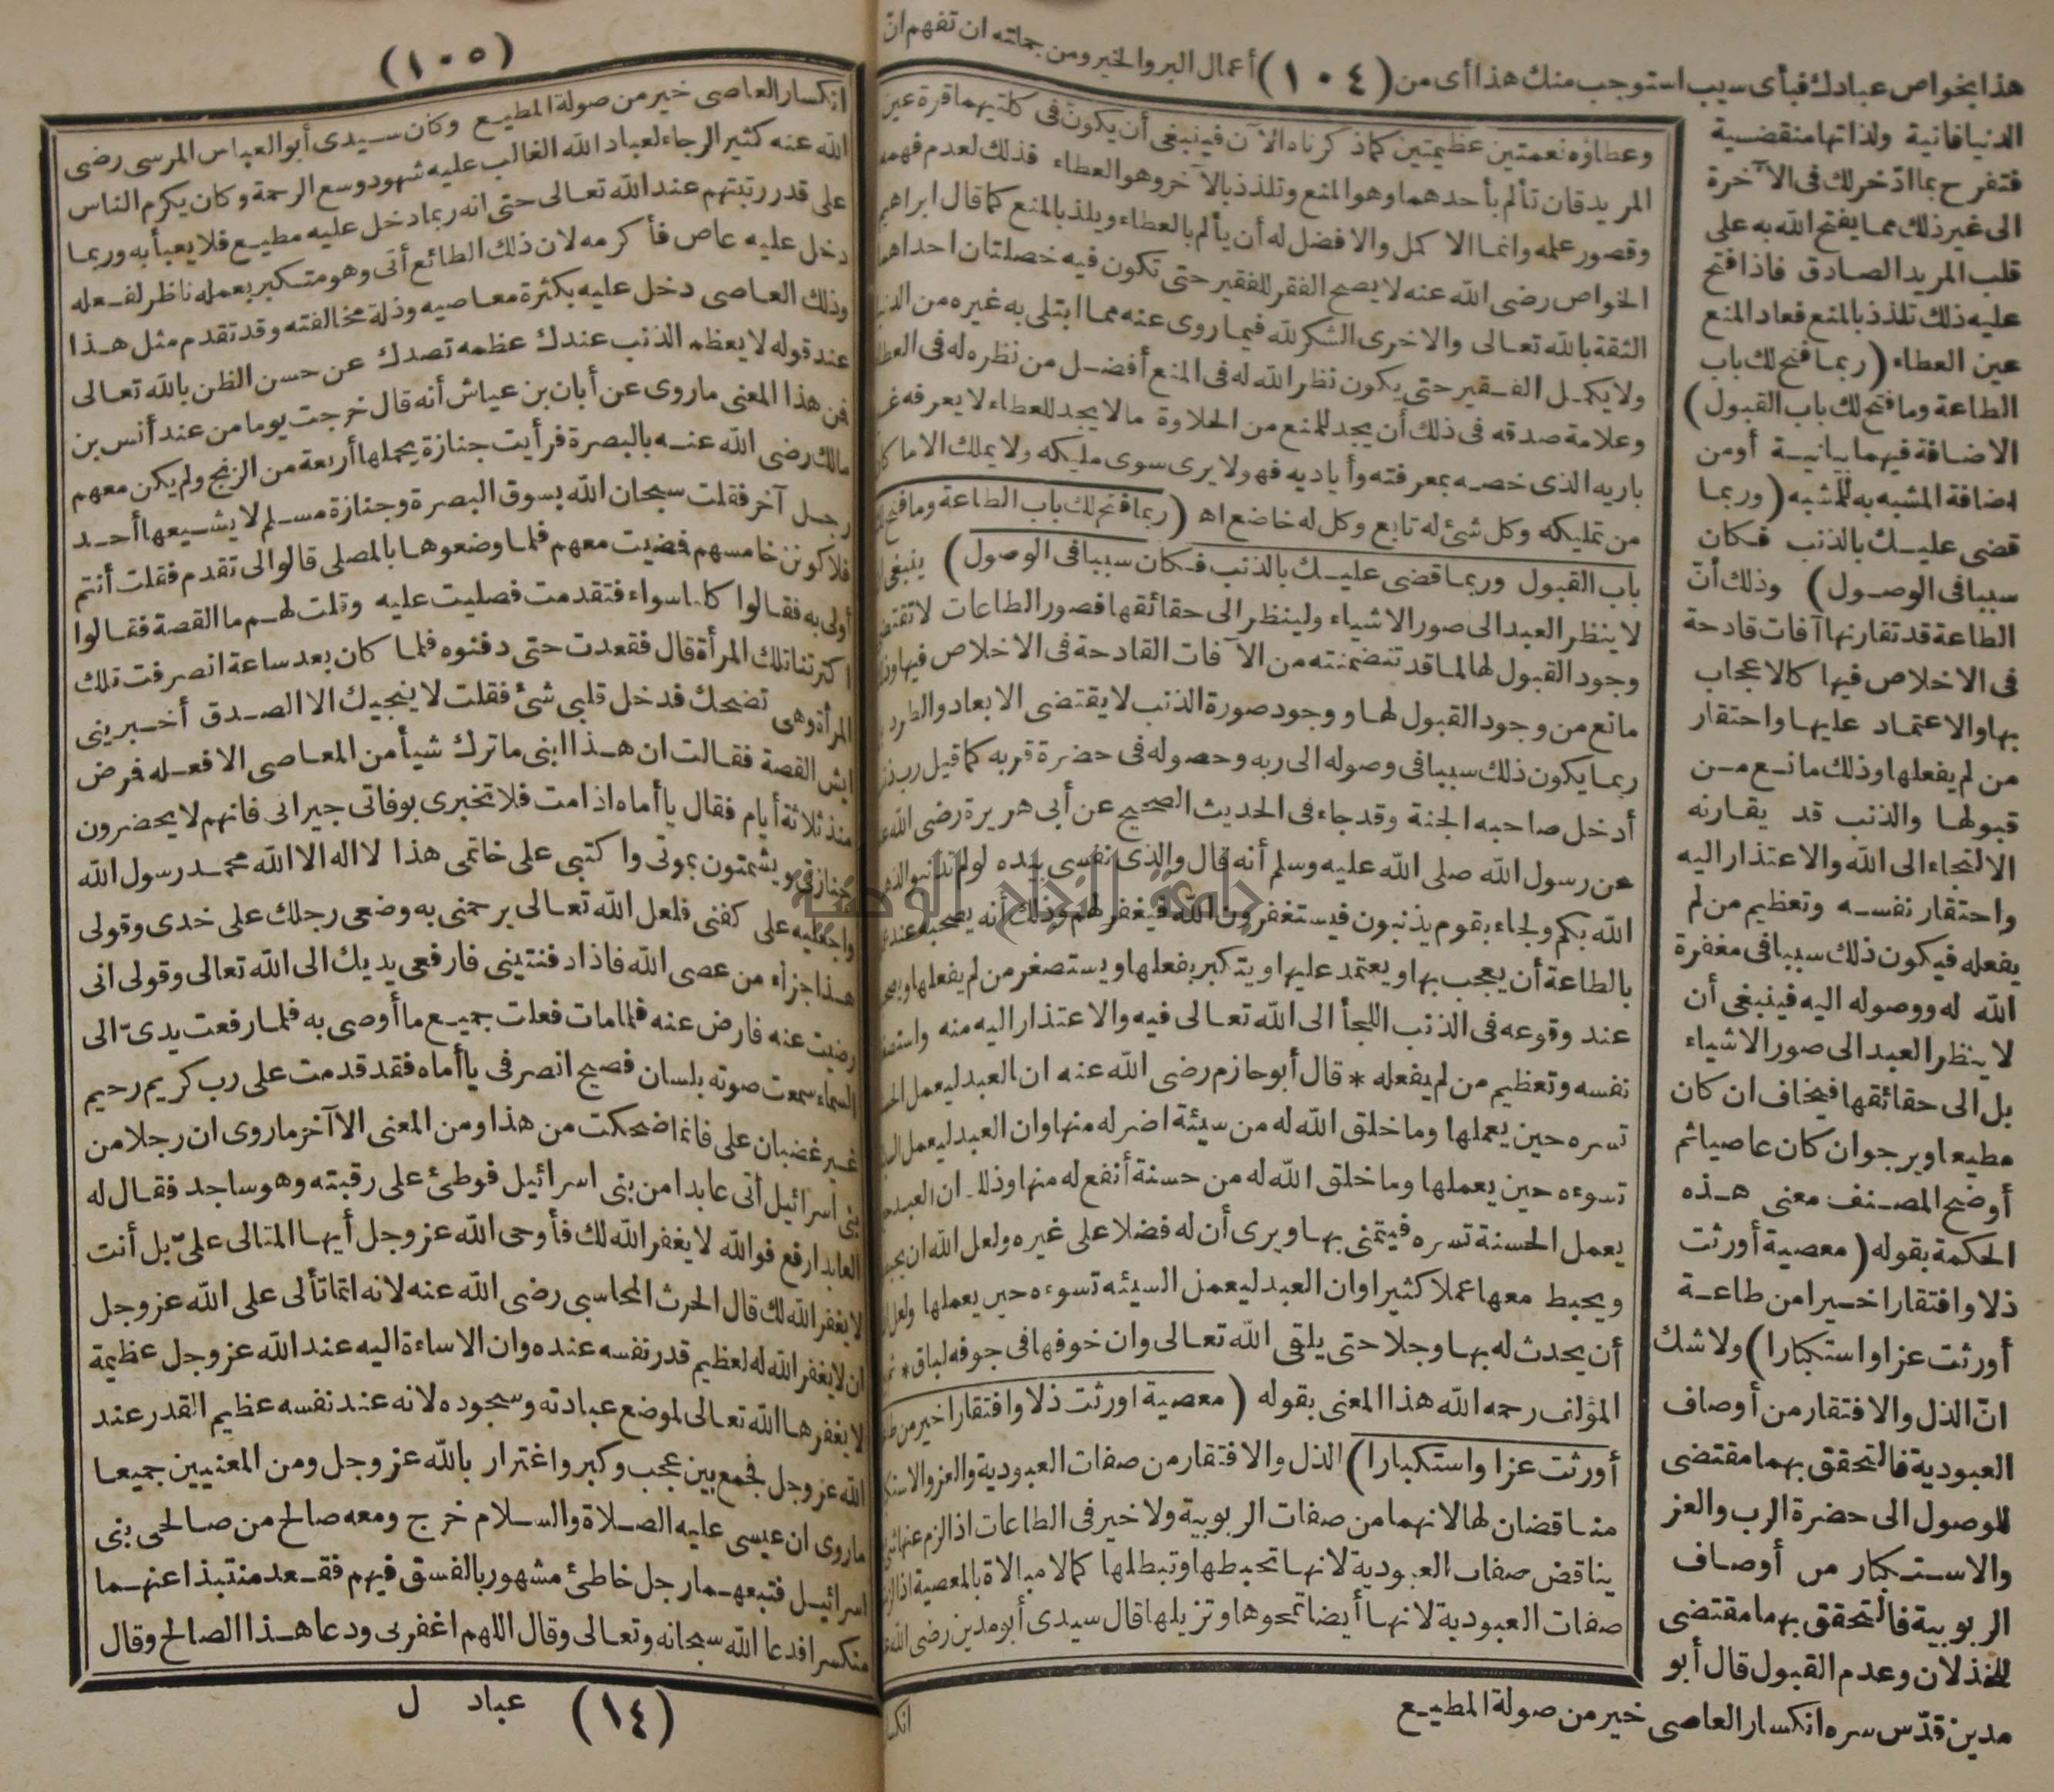 هذا بخواص عبادك فبأى سبب استوجب منك هذا أى من (١٠٤) أعمال البر والخير ومن جملته ان تفهم انّ
الدنيا فانية ولذاتها منقضية
فتفرح بما ادّخر لك فى الآخرة
الى غير ذلك مما يفتح الله به على
قلب المريد الصادق فاذا فتح
عليه ذلك تلذذ بالمنع فعاد المنع
عين العطاء (ربما فتح لك باب
الطاعة وما فتح لك باب القبول)
الاضافة فيهما بيانية أو من
اضافة المشبه به للمشبه (وربما
قضى عليك بالذنب فكان
سببا فى الوصول) وذلك أنّ
الطاعة قد تقارنها آفات قادحة
فى الاخلاص فيها كالاعجاب
بها والاعتماد عليها واحتقار
من لم يفعلها وذلك مانع من
قبولها والذنب قد يقارنه
الالتجاء الى الله والاعتذار اليه
واحتقار نفسه وتعظيم من لم
يفعله فيكون ذلك سببا فى مغفرة
الله له ووصوله اليه فينبغى أن
لا ينظر العبد الى صور الاشياء
بل الى حقائقها فيخاف ان كان
مطيعا ويرجو ان كان عاصيا ثم
أوضح المصنف معنى هذه
الحكمة بقوله (معصية أورثت
ذلا وافتقارا خيرا من طاعة
أورثت عزا واستكبارا) ولا شك
انّ الذل والافتقار من أوصاف
العبودية فالتحقق بهما مقتضى
للوصول الى حضرة الرب والعز
والاستكبار من أوصاف
الربوبية فالتحقق بهما مقتضى
للخذلان وعدم القبول قال أبو
مدين قدّس سره انكسار العاصى خير من صولة المطيع
وعطاؤه نعمتين عظيمتين كما ذكرناه الآن فينبغى أن يكون فى كلتيهما قرة عين
المريد فان تألم بأحدهما وهو المنع وتلذذ بالآخر وهو العطاء فذلك لعدم فهمه
وقصور علمه وانما الاكمل والافضل له أن يألم بالعطاء ويلذ بالمنع كما قال ابراهيم
الخواص رضى الله عنه لا يصح الفقر للفقير حتى تكون فيه خصلتان احداهما
الثقة بالله تعالى والاخرى الشكر لله فيما روى عنه مما ابتلى به غيره من الدنيا
ولا يكمل الفقير حتى يكون نظر الله له فى المنع أفضل من نظره له فى العطاء
وعلامة صدقه فى ذلك أن يجد للمنع من الحلاوة ما لا يجد للعطاء لا يعرفه
باريه الذى خصه بمعرفته وأياديه فهو لا يرى سوى مليكه ولا يملك الا ما كان
من تمليكه وكل شئ له تابع وكل له خاضع اه (ربما فتح لك باب الطاعة وما فتح لك
باب القبول وربما قضى عليك بالذنب فكان سببا فى الوصول) ينبغى
لا ينظر العبد الى صور الاشياء ولينظر الى حقائقها فصور الطاعات لا تقتضى
وجود القبول لها لما قد تتضمنته من الآفات القادحة فى الاخلاص فيها
مانع من وجود القبول لها ووجود صورة الذنب لا يقتضى الابعاد والطرد
ربما يكون ذلك سببا فى وصوله الى ربه وحصوله فى حضرة قربه كما قيل رب ذنب
أدخل صاحبه الجنة وقد جاء فى الحديث الصحيح عن أبى هريرة رضى الله
عن رسول الله صلى الله عليه وسلم أنه قال والذى نفسى بيده لو لم تذنبوا لذهب
الله بكم ولجاء بقوم يذنبون فيستغفرون الله فيغفر لهم وذلك أنه يصحبه عند
بالطاعة أن يعجب بها ويعتمد عليها ويتكبر بفعلها ويستصغر من لم يفعلها
عند وقوعه فى الذنب اللجأ الى الله تعالى فيه والاعتذار اليه منه
نفسه وتعظيم من لم يفعله * قال أبو حازم رضى الله عنه ان العبد ليعمل
تسره حين يعملها وما خلق الله له من سيئة اضر له منها وان العبد ليعمل
تسوءه حين يعملها وما خلق الله له من حسنة أنفع له منها وذلك ان العبد
يعمل الحسنة تسره فيتمنى بها ويرى أن له فضلا على غيره ولعل الله ان
ويحبط معها عملا كثيرا وان العبد ليعمل السيئه تسوءه حين يعملها
أن يحدث له بها وجلا حتى يلقى الله تعالى وان خوفها فى جوفه لباق *
المؤلف رحمه الله هذا المعنى بقوله (معصية اورثت ذلا وافتقارا خير من
أورثت عزا واستكبارا) الذل والافتقار من صفات العبودية والعز
مناقضان لها لانهما من صفات الربوبية ولا خير فى الطاعات اذا لزم عنها
يناقض صفات العبودية لانها تحبطها وتبطلها كما لا مبالاة بالمعصية اذا
صفات العبودية لانها أيضا تمحوها وتزيلها قال سيدى أبو مدين رضى الله
(١٠٥)
انكسار العاصى خير من صولة المطيع وكان سيدى أبو العباس المرسى رضى
الله عنه كثير الرجاء لعباد الله الغالب عليه شهود وسع الرحمة وكان يكرم الناس
على قدر رتبتهم عند الله تعالى حتى انه ربما دخل عليه مطيع فلا يعبأ به وربما
دخل عليه عاص فأكرمه لان ذلك الطائع أتى وهو متكبر بعمله ناظر لفعله
وذلك العاصى دخل عليه بكثرة معاصيه وذلة مخالفته وقد تقدم مثل هذا
عند قوله لا يعظم الذنب عندك عظمه تصدك عن حسن الظن بالله تعالى
فن هذا المعنى ما روى عن أبان بن عياش أنه قال خرجت يوما من عند أنس بن
مالك رضى الله عنه بالبصرة فرأيت جنازة يحملها أربعة من الزنج ولم يكن معهم
رجل آخر فقلت سبحان الله بسوق البصرة وجنازة مسلم لا يشيعها أحد
فلا كونن خامسهم فضيت معهم فلما وضعوها بالمصلى قالوا لى تقدم فقلت أنتم
أولى به فقالوا كلنا سواء فتقدمت فصليت عليه وقلت لهم ما القصة فقالوا
اكترتنا تلك المرأة قال فقعدت حتى دفنوه فلما كان بعد ساعة انصرفت تلك
المرأة وهى تضحك فدخل قلبى شئ فقلت لا ينجيك الا الصدق أخبرينى
ايش القصة فقالت ان هذا ابنى ما ترك شيأ من المعاصى الا فعله فرض
منذ ثلاثة أيام فقال يا أماه اذا مت فلا تخبرى بوفاتى جيرانى فانهم لا يحضرون
جنازتى ويشمتون بموتى واكتبى على خاتمى هذا لا اله الا الله محمد رسول الله
واجعليه على كفنى فلعل الله تعالى يرحمنى به وضعى رجلك على خدى وقولى
هذا جزاء من عصى الله فاذا دفنتينى فارفعى يديك الى الله تعالى وقولى انى
رضيت عنه فارض عنه فلما مات فعلت جميع ما أوصى به فلما رفعت يدىّ الى
السماء سمعت صوته بلسان فصيح انصرفى يا أماه فقد قدمت على رب كريم رحيم
غير غضبان على فانما ضحكت من هذا ومن المعنى الآخر ما روى ان رجلا من
بنى اسرائيل أتى عابدا من بنى اسرائيل فوطئ على رقبته وهو ساجد فقال له
العابد ارفع فوالله لا يغفر الله لك فأوحى الله عز وجل أيها المتالى علىّ بل أنت
لا يغفر الله لك قال الحرث المحاسبى رضى الله عنه لانه انما تألى على الله عز وجل
ان لا يغفر الله له لعظيم قدر نفسه عنده وان الاساءة اليه عند الله عز وجل عظيمة
لا يغفرها الله تعالى لموضع عبادته وسجوده لانه عند نفسه عظيم القدر عند
الله عز وجل فجمع بين عجب وكبر واغترار بالله عز وجل ومن المعنيين جميعا
ماروى ان عيسى عليه الصلاة والسلام خرج ومعه صالح من صالحى بنى
اسرائيل فتبعهما رجل خاطئ مشهور بالفسق فيهم فقعد منتبذا عنهما
منكسرا فدعا الله سبحانه وتعالى وقال اللهم اغفر لى ودعا هذا الصالح وقال
(١٤) عباد ل
جامعة النجاح الوطنية